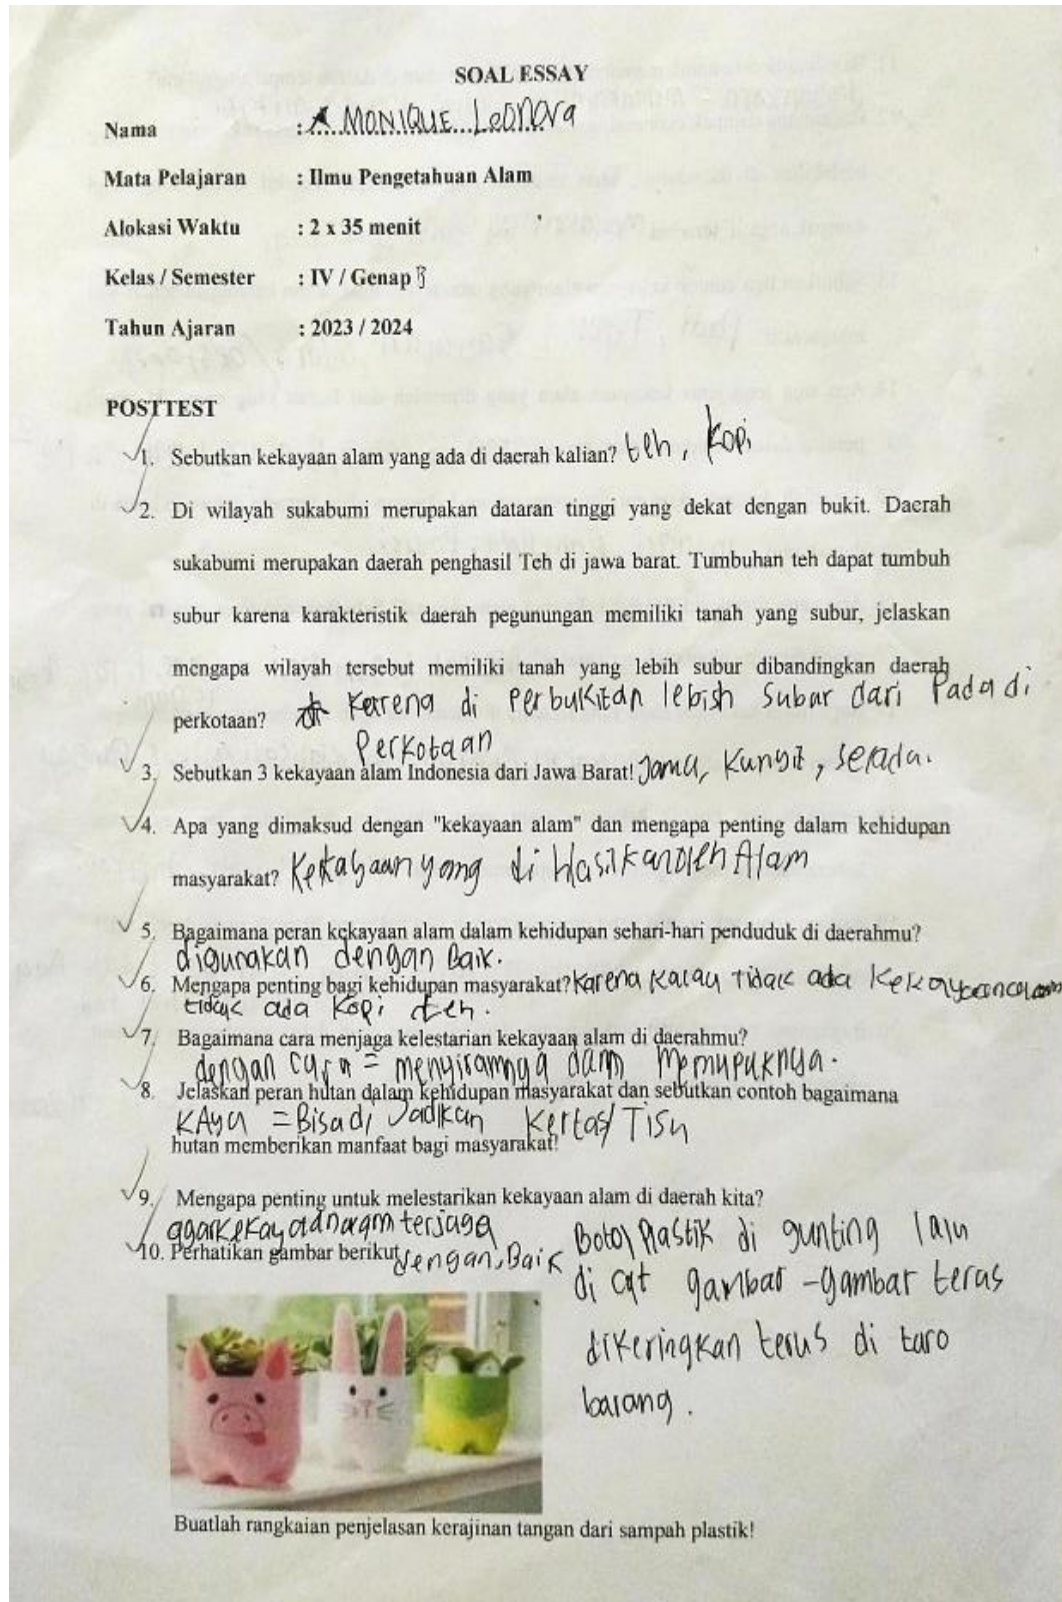 SOAL ESSAY
Nama : MONIQUE Leonora
Mata Pelajaran : Ilmu Pengetahuan Alam
Alokasi Waktu : 2 x 35 menit
Kelas / Semester : IV / Genap B
Tahun Ajaran : 2023 / 2024
POSTTEST
1. Sebutkan kekayaan alam yang ada di daerah kalian? teh, kopi
2. Di wilayah sukabumi merupakan dataran tinggi yang dekat dengan bukit. Daerah
sukabumi merupakan daerah penghasil Teh di jawa barat. Tumbuhan teh dapat tumbuh
subur karena karakteristik daerah pegunungan memiliki tanah yang subur, jelaskan
mengapa wilayah tersebut memiliki tanah yang lebih subur dibandingkan daerah
perkotaan? Karena di Perbukitan lebish Subar dari Pada di
Perkotaan
3. Sebutkan 3 kekayaan alam Indonesia dari Jawa Barat! Jamu, Kunyit, Selada.
4. Apa yang dimaksud dengan "kekayaan alam" dan mengapa penting dalam kehidupan
masyarakat? Kekayaan yang di Hasilkan oleh Alam
5. Bagaimana peran kekayaan alam dalam kehidupan sehari-hari penduduk di daerahmu?
digunakan dengan Baik.
6. Mengapa penting bagi kehidupan masyarakat? Karena Kalau Tidak ada
tidak ada kopi teh.
7. Bagaimana cara menjaga kelestarian kekayaan alam di daerahmu?
dengan cara = menyiramnya dann memupuknya.
8. Jelaskan peran hutan dalam kehidupan masyarakat dan sebutkan contoh bagaimana
KAyu = Bisa di Jadikan Kertas/Tisu
hutan memberikan manfaat bagi masyarakat!
9. Mengapa penting untuk melestarikan kekayaan alam di daerah kita?
agar kekayaan alam terjaga
10. Perhatikan gambar berikut dengan Baik
Botol Plastik di gunting lalu
di cat gambar-gambar terus
dikeringkan terus di taro
barang.
Buatlah rangkaian penjelasan kerajinan tangan dari sampah plastik!